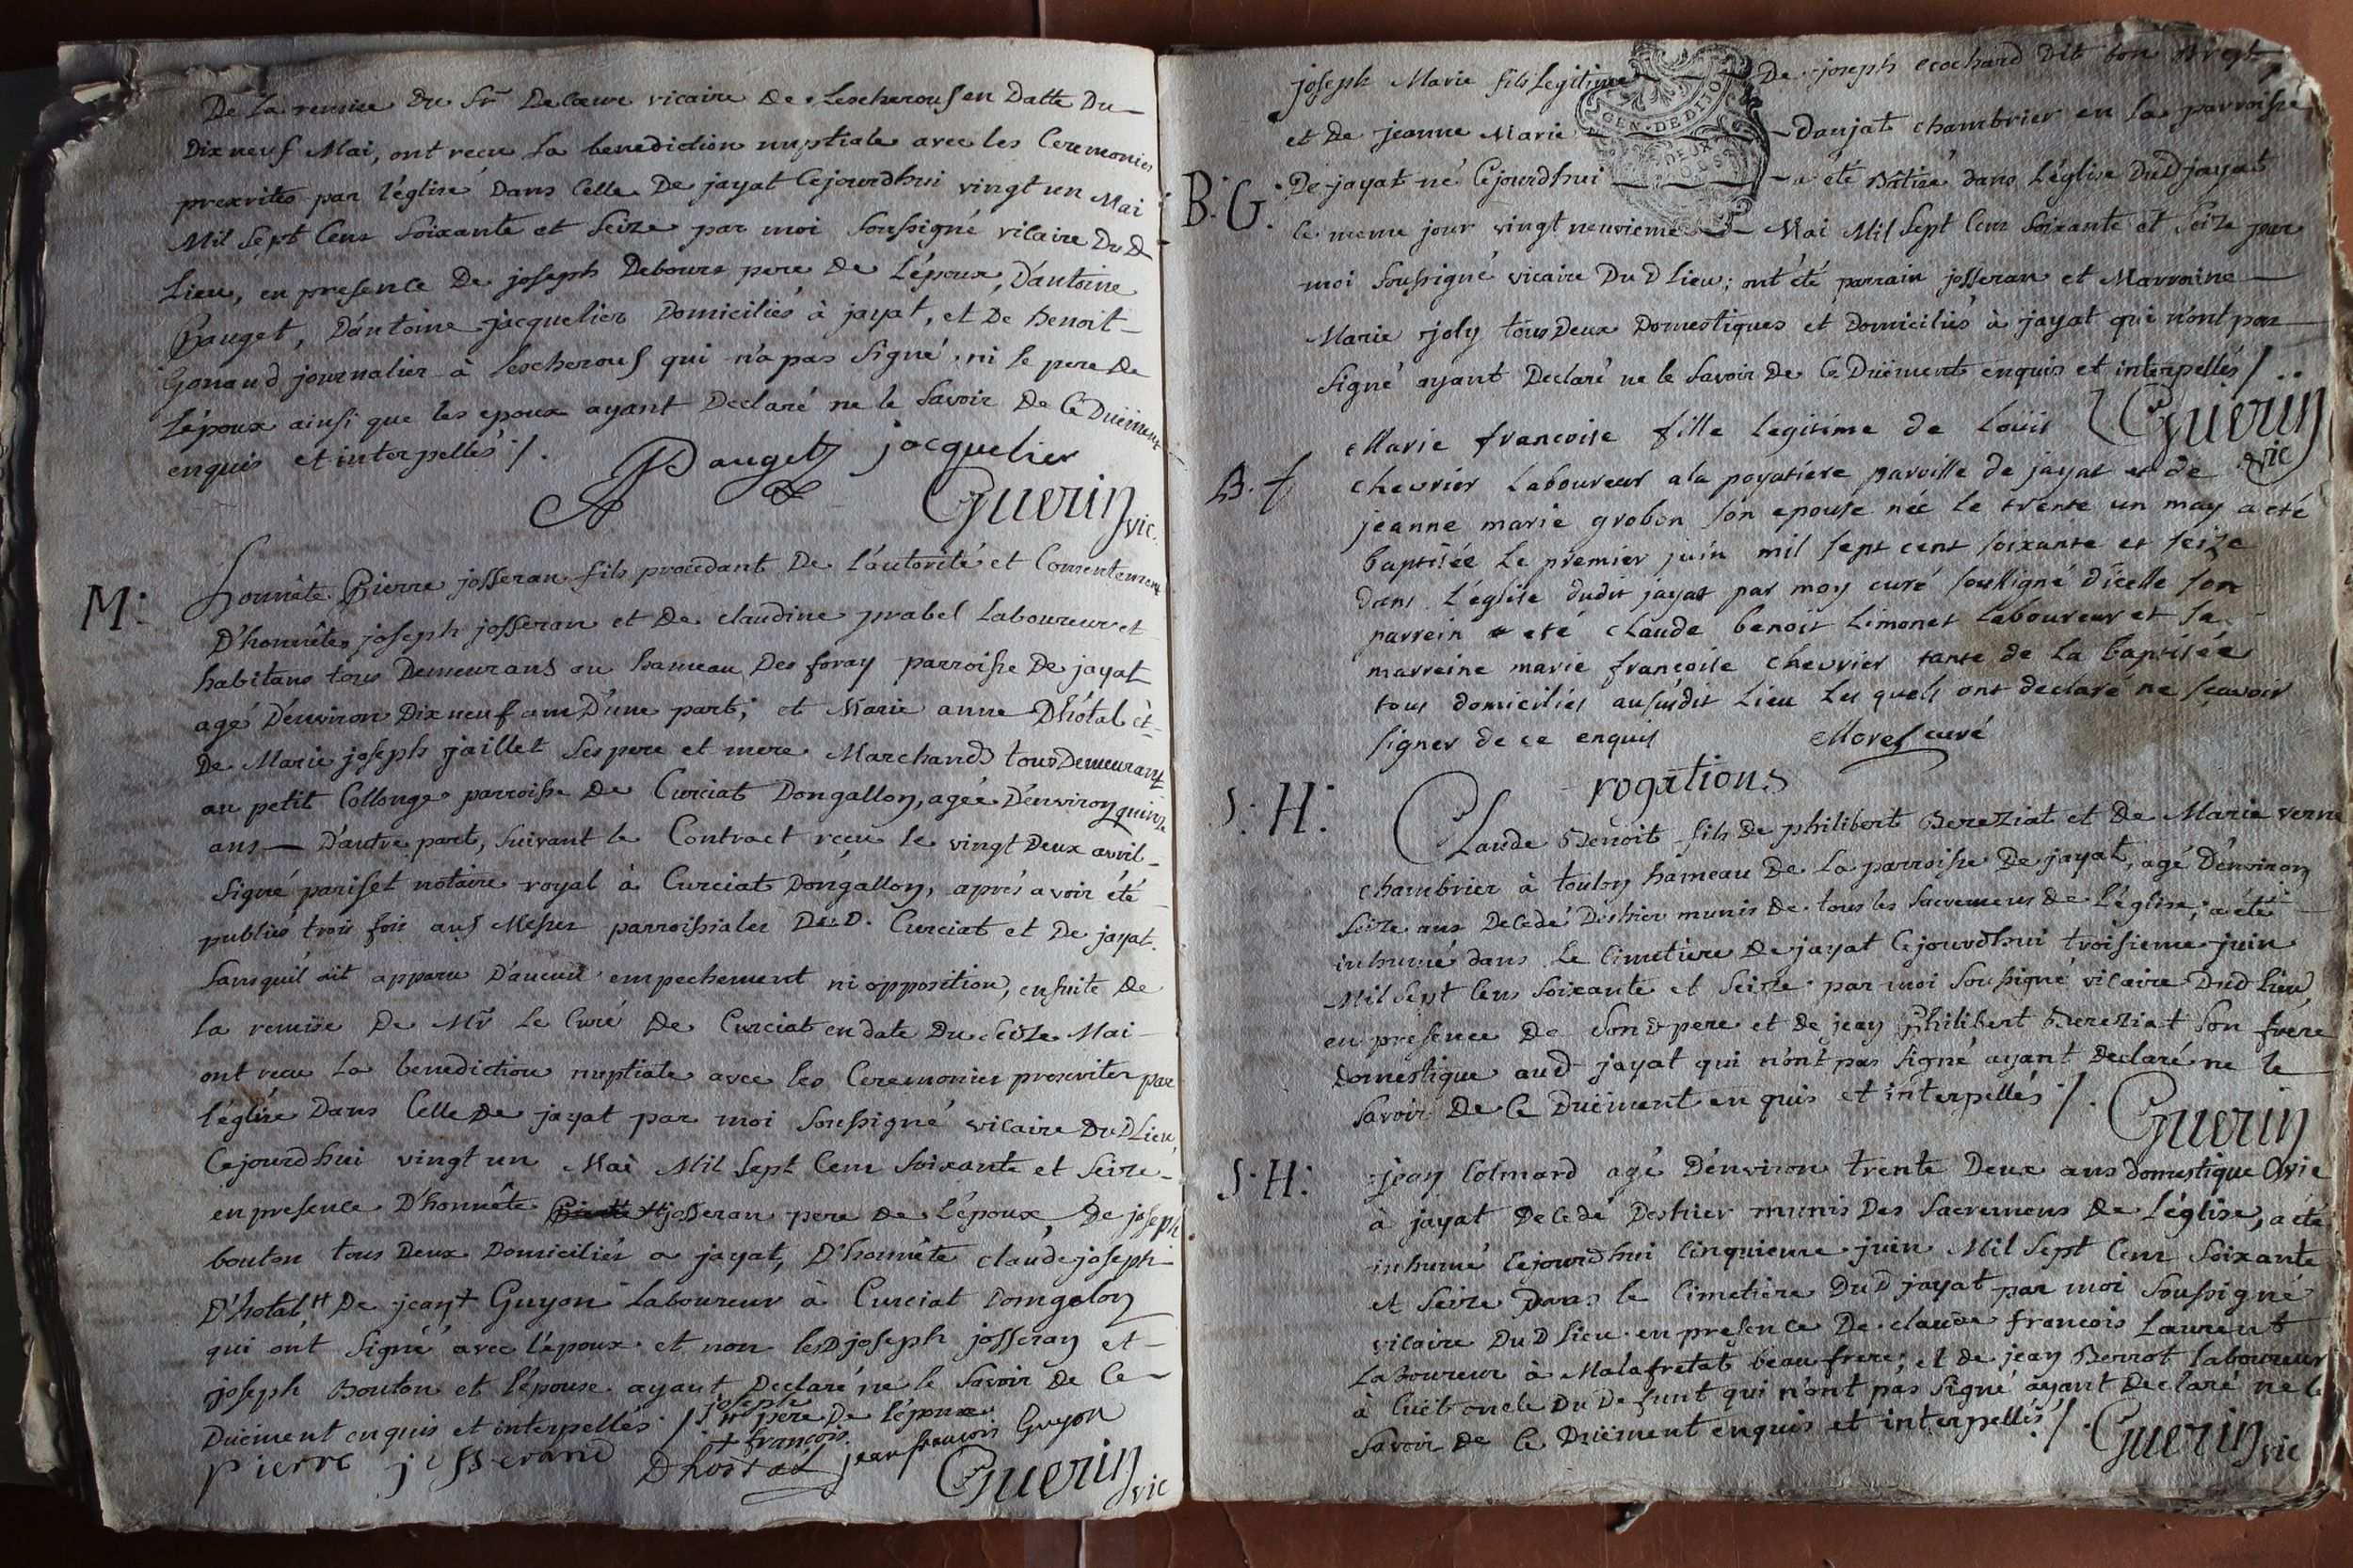 De la remise du Sr Decoeur vicaire de Lescherous en datte du
dix neuf Mai, ont reçu la benediction nuptiale avec les Ceremonies
prescrites par l'église dans Celle de jayat Cejourdhui vingt un Mai
Mil Sept Cens Soixante et Seize par moi Soussigné vicaire Dud
Lieu, en presence De joseph Debours pere de L'époux, D'antoine
Pauget, D'antoine jacquelier Domiciliés à jayat, et De Benoit
Gonaud journalier à Lescherous qui n'a pas Signé, ni le pere De
L'époux ainsi que les epoux ayant Declaré ne le Savoir De Ce Duëment
enquis et interpellés /.
Pauget jacquelier
Guerin vic.
M: honnête Pierre josseran fils procedant De L'autorité et Consentement
D'honnêtes joseph josseran et De claudine prabel Laboureur et
habitans tous Demeurans au hameau Des foray parroisse De jayat
agé D'environ Dix neuf ans D'une part; et Marie anne D'hôtal et
De Marie joseph jaillet Ses pere et mere Marchands tous Demeurant
au petit Collonge parroisse De Curciat Dongallon, agée D'environ quinze
ans — D'autre part, Suivant le Contract reçu le vingt Deux avril
Signé pariset notaire royal à Curciat Dongallon, aprés avoir été
publiés trois fois aus Messes parroissiales DuD. Curciat et De jayat.
Sans qu'il ait apparu D'aucun empechement ni opposition, ensuite De
la remise De Mr Le Curé De Curciat en date Du Seize Mai
ont reçu la benediction nuptiale avec les Ceremonies prescrites par
l'église Dans Celle De jayat par moi Soussigné vicaire DuD Lieu
Cejourdhui vingt un Mai Mil Sept Cens Soixante et Seize
en presence D'honnête Pierre # josseran pere De L'époux, De joseph
bouton tous Deux Domiciliés a jayat, D'honnête claude joseph
D'hotal, # De jean + Guyon Laboureur à Curciat Domgalon
qui ont Signé avec l'époux et non lesD joseph josseran et
joseph Bouton et l'épouse ayant Declaré ne le Savoir De Ce
Duëment enquis et interpellés / # joseph pere De l'époux
+ francois
pierre josserand Dhostal jean francois Guyon
Guerin vic
joseph Marie fils Legitime De joseph ecochard Dit bon
et De jeanne Marie Danjat chambrier en la parroisse
B: G: De jayat né Cejourdhui a été Bâtisé dans L'église DuD jayat
le meme jour vingt neuvieme Mai Mil Sept Cens Soixante et Seize par
moi Soussigné vicaire Du D Lieu; ont été parrain josseran et Marraine
Marie joly tous Deux Domestiques et Domiciliés à jayat qui n'ont pas
Signé ayant Declaré ne le Savoir De Ce Duëment enquis et interpellés /.
Guerin vic
B. f Marie francoise fille Legitime de Loüis
chevrier Laboureur a la poyatiere paroisse de jayat et de
jeanne marie grobon son epouse née le trente un may a eté
baptisée Le premier juin mil sept cent soixante et seize
dans L'église dudit jayat par moy curé soussigné d'icelle son
parrein a eté claude benoit Limonet Laboureur et sa
marreine marie françoise chevrier tante de la baptisée
tous domiciliés au susdit Lieu Les quels ont declaré ne sçavoir
signer de ce enquis Morel curé
rogations
S: H: Claude Benoit fils De philibert Bereziat et De Marie verne
chambrier à toulon hameau De La parroisse De jayat, agé D'environ
Seize ans Decedé Deshier munis De tous les Sacremens De L'église, a été
inhumé dans Le Cimetiere De jayat Cejourdhui troisieme juin
Mil Sept Cens Soixante et Seize par moi Soussigné vicaire DuD Lieu
en presence De Son D pere et de jean Philibert Bereziat Son frere
Domestique auD jayat qui n'ont pas Signé ayant Declaré ne le
Savoir De Ce Duëment enquis et interpellés /.
Guerin vic
S: H: jean Colmard agé D'environ trente Deux ans domestique
à jayat Decedé Deshier munis Des Sacremens De L'église, a été
inhumé Cejourdhui Cinquieme juin Mil Sept Cens Soixante
et Seize Dans le Cimetiere DuD jayat par moi Soussigné
vicaire DuD Lieu en presence De claude francois Laurent
Laboureur à Malafretat beau frere; et De jean Berrot laboureur
à Cuët oncle Du Defunt qui n'ont pas Signé ayant Declaré ne le
Savoir De Ce Duëment enquis et interpellés /.
Guerin vic
GEN · DE DIJON
DEUX